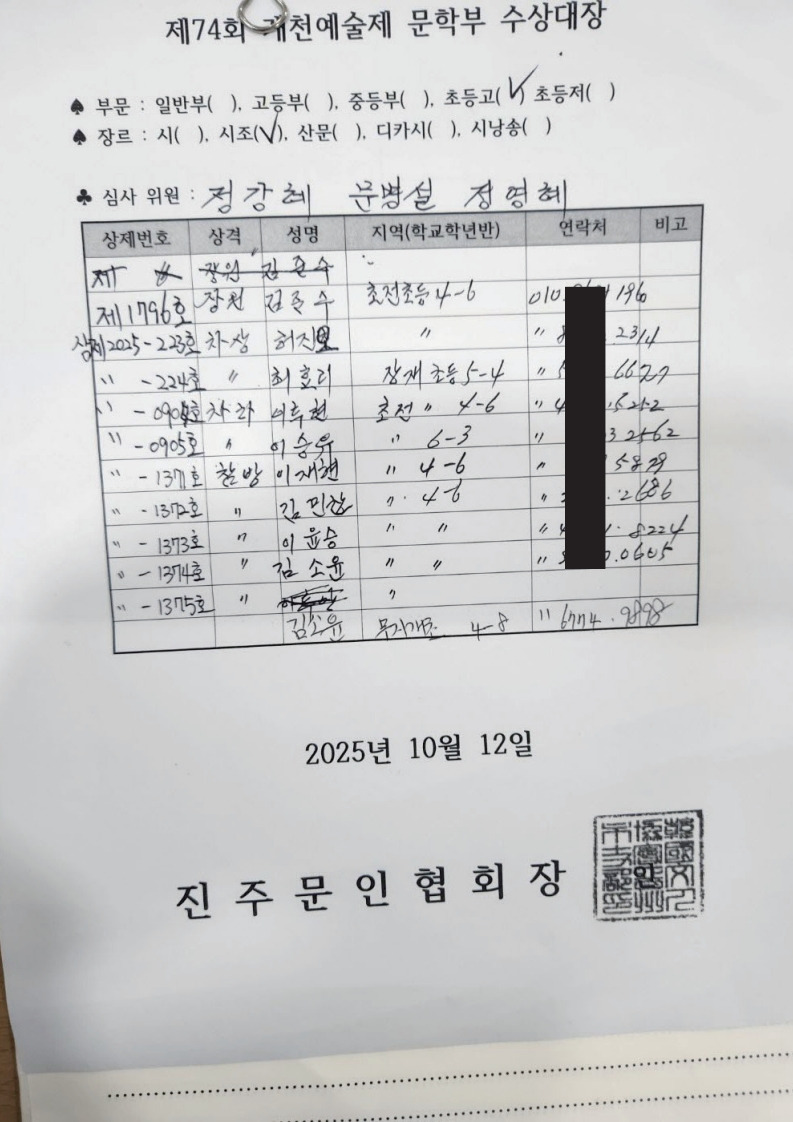 제74회 개천예술제 문학부 수상대장
♠ 부문 : 일반부( ), 고등부( ), 중등부( ), 초등고(✓) 초등저( )
♠ 장르 : 시( ), 시조(✓), 산문( ), 디카시( ), 시낭송( )
♣ 심사 위원 : 정강혜 문병설 정영혜
상제번호 상격 성명 지역(학교학년반) 연락처 비고
제 장원 김준수
제1796호 장원 김준수 초전초등 4-6 010. 196
상제2025-223호 차상 허진 〃 〃 8 2314
〃 -224호 〃 최효리 잠재초등 5-4 〃 5 6677
〃 -0904호 차하 이후현 초전 〃 4-6 〃 4 .5252
〃 -0905호 〃 이승유 〃 6-3 〃 3 2562
〃 -1371호 참방 이재현 〃 4-6 〃 5829
〃 -1372호 〃 김민찬 〃 4-6 〃 2 .2686
〃 -1373호 〃 이윤승 〃 〃 〃 4 1. 8224
〃 -1374호 〃 김소윤 〃 〃 〃 8 0.0605
〃 -1375호 〃 〃
김소윤 무지개초 4-8 〃 6774.9898
2025년 10월 12일
진주문인협회장
인